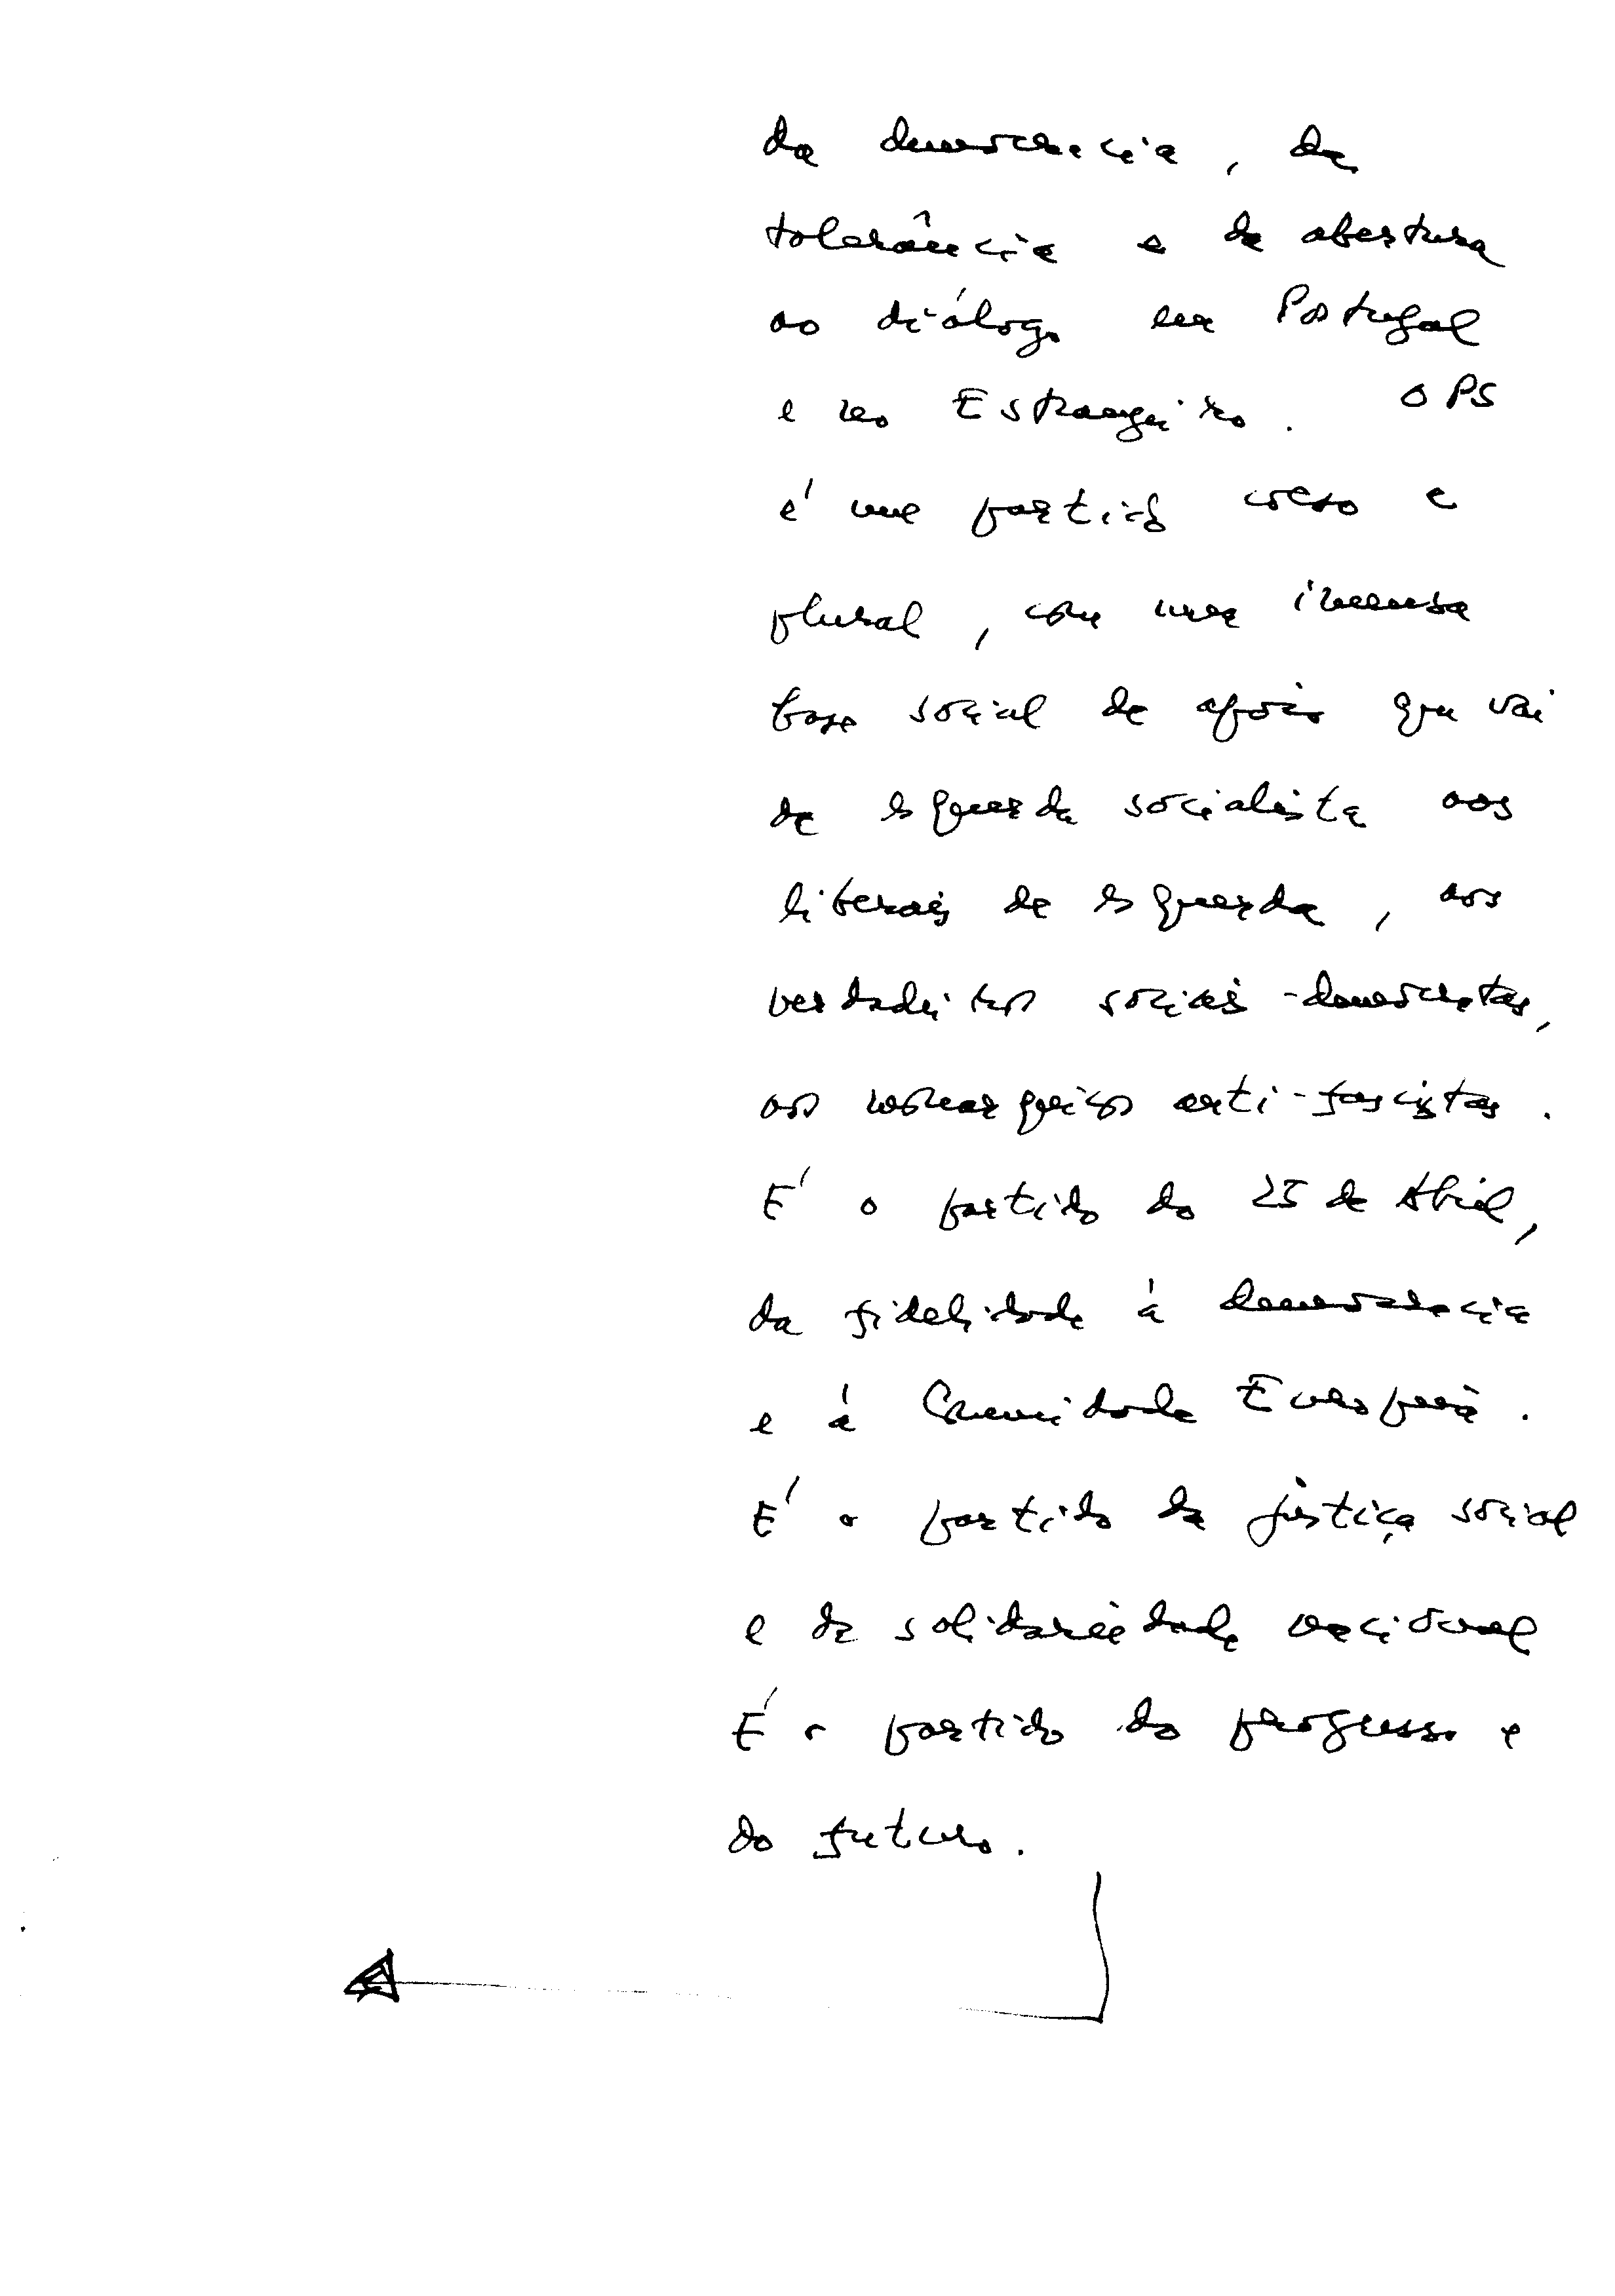 da democracia, da
tolerância e da abertura
ao diálogo em Portugal
e no Estrangeiro. O PS
é um partido coeso e
plural, com uma imensa
base social de apoio que vai
da esquerda socialista aos
liberais de esquerda, aos
verdadeiros sociais-democratas,
aos monarquicos anti-fascistas.
É o partido do 25 de Abril,
da fidelidade à democracia
e à Comunidade Europeia.
É o partido da justiça social
e da solidariedade nacional
É o partido do progresso e
do futuro.